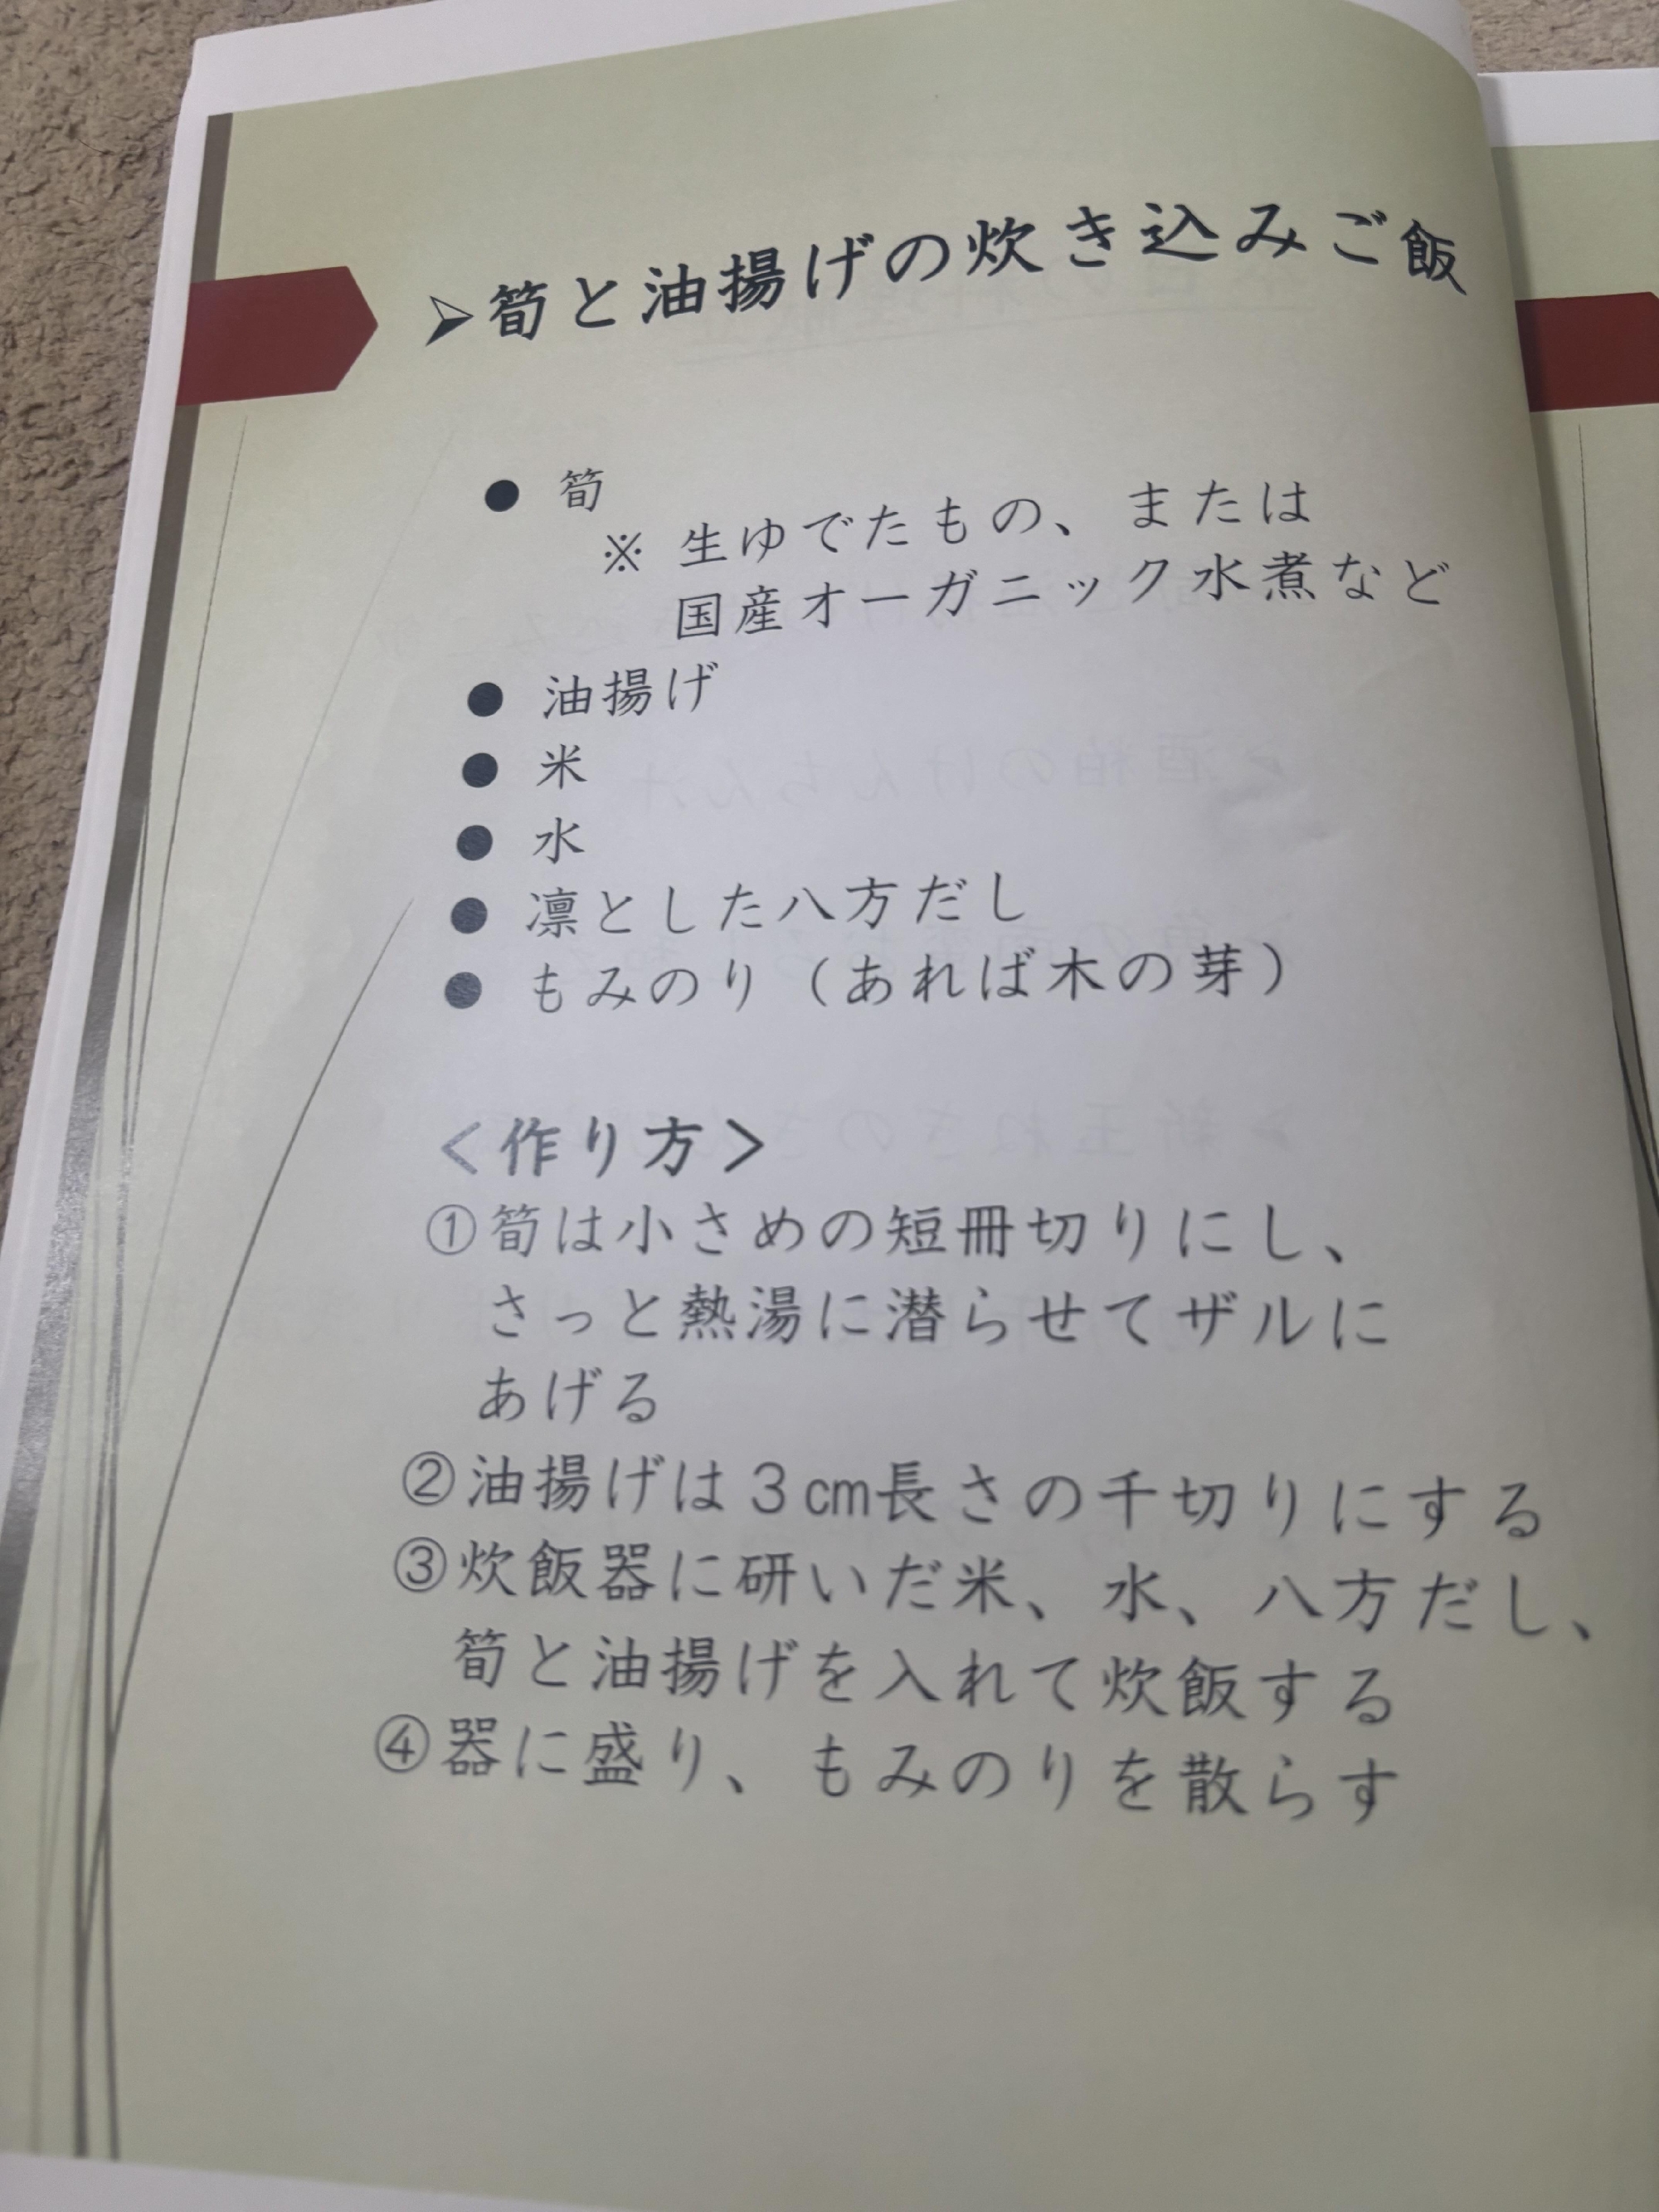 ➢筍と油揚げの炊き込みご飯
● 筍
※ 生ゆでたもの、または
国産オーガニック水煮など
● 油揚げ
● 米
● 水
● 凛とした八方だし
● もみのり（あれば木の芽）
＜作り方＞
①筍は小さめの短冊切りにし、
さっと熱湯に潜らせてザルに
あげる
②油揚げは３㎝長さの千切りにする
③炊飯器に研いだ米、水、八方だし、
筍と油揚げを入れて炊飯する
④器に盛り、もみのりを散らす